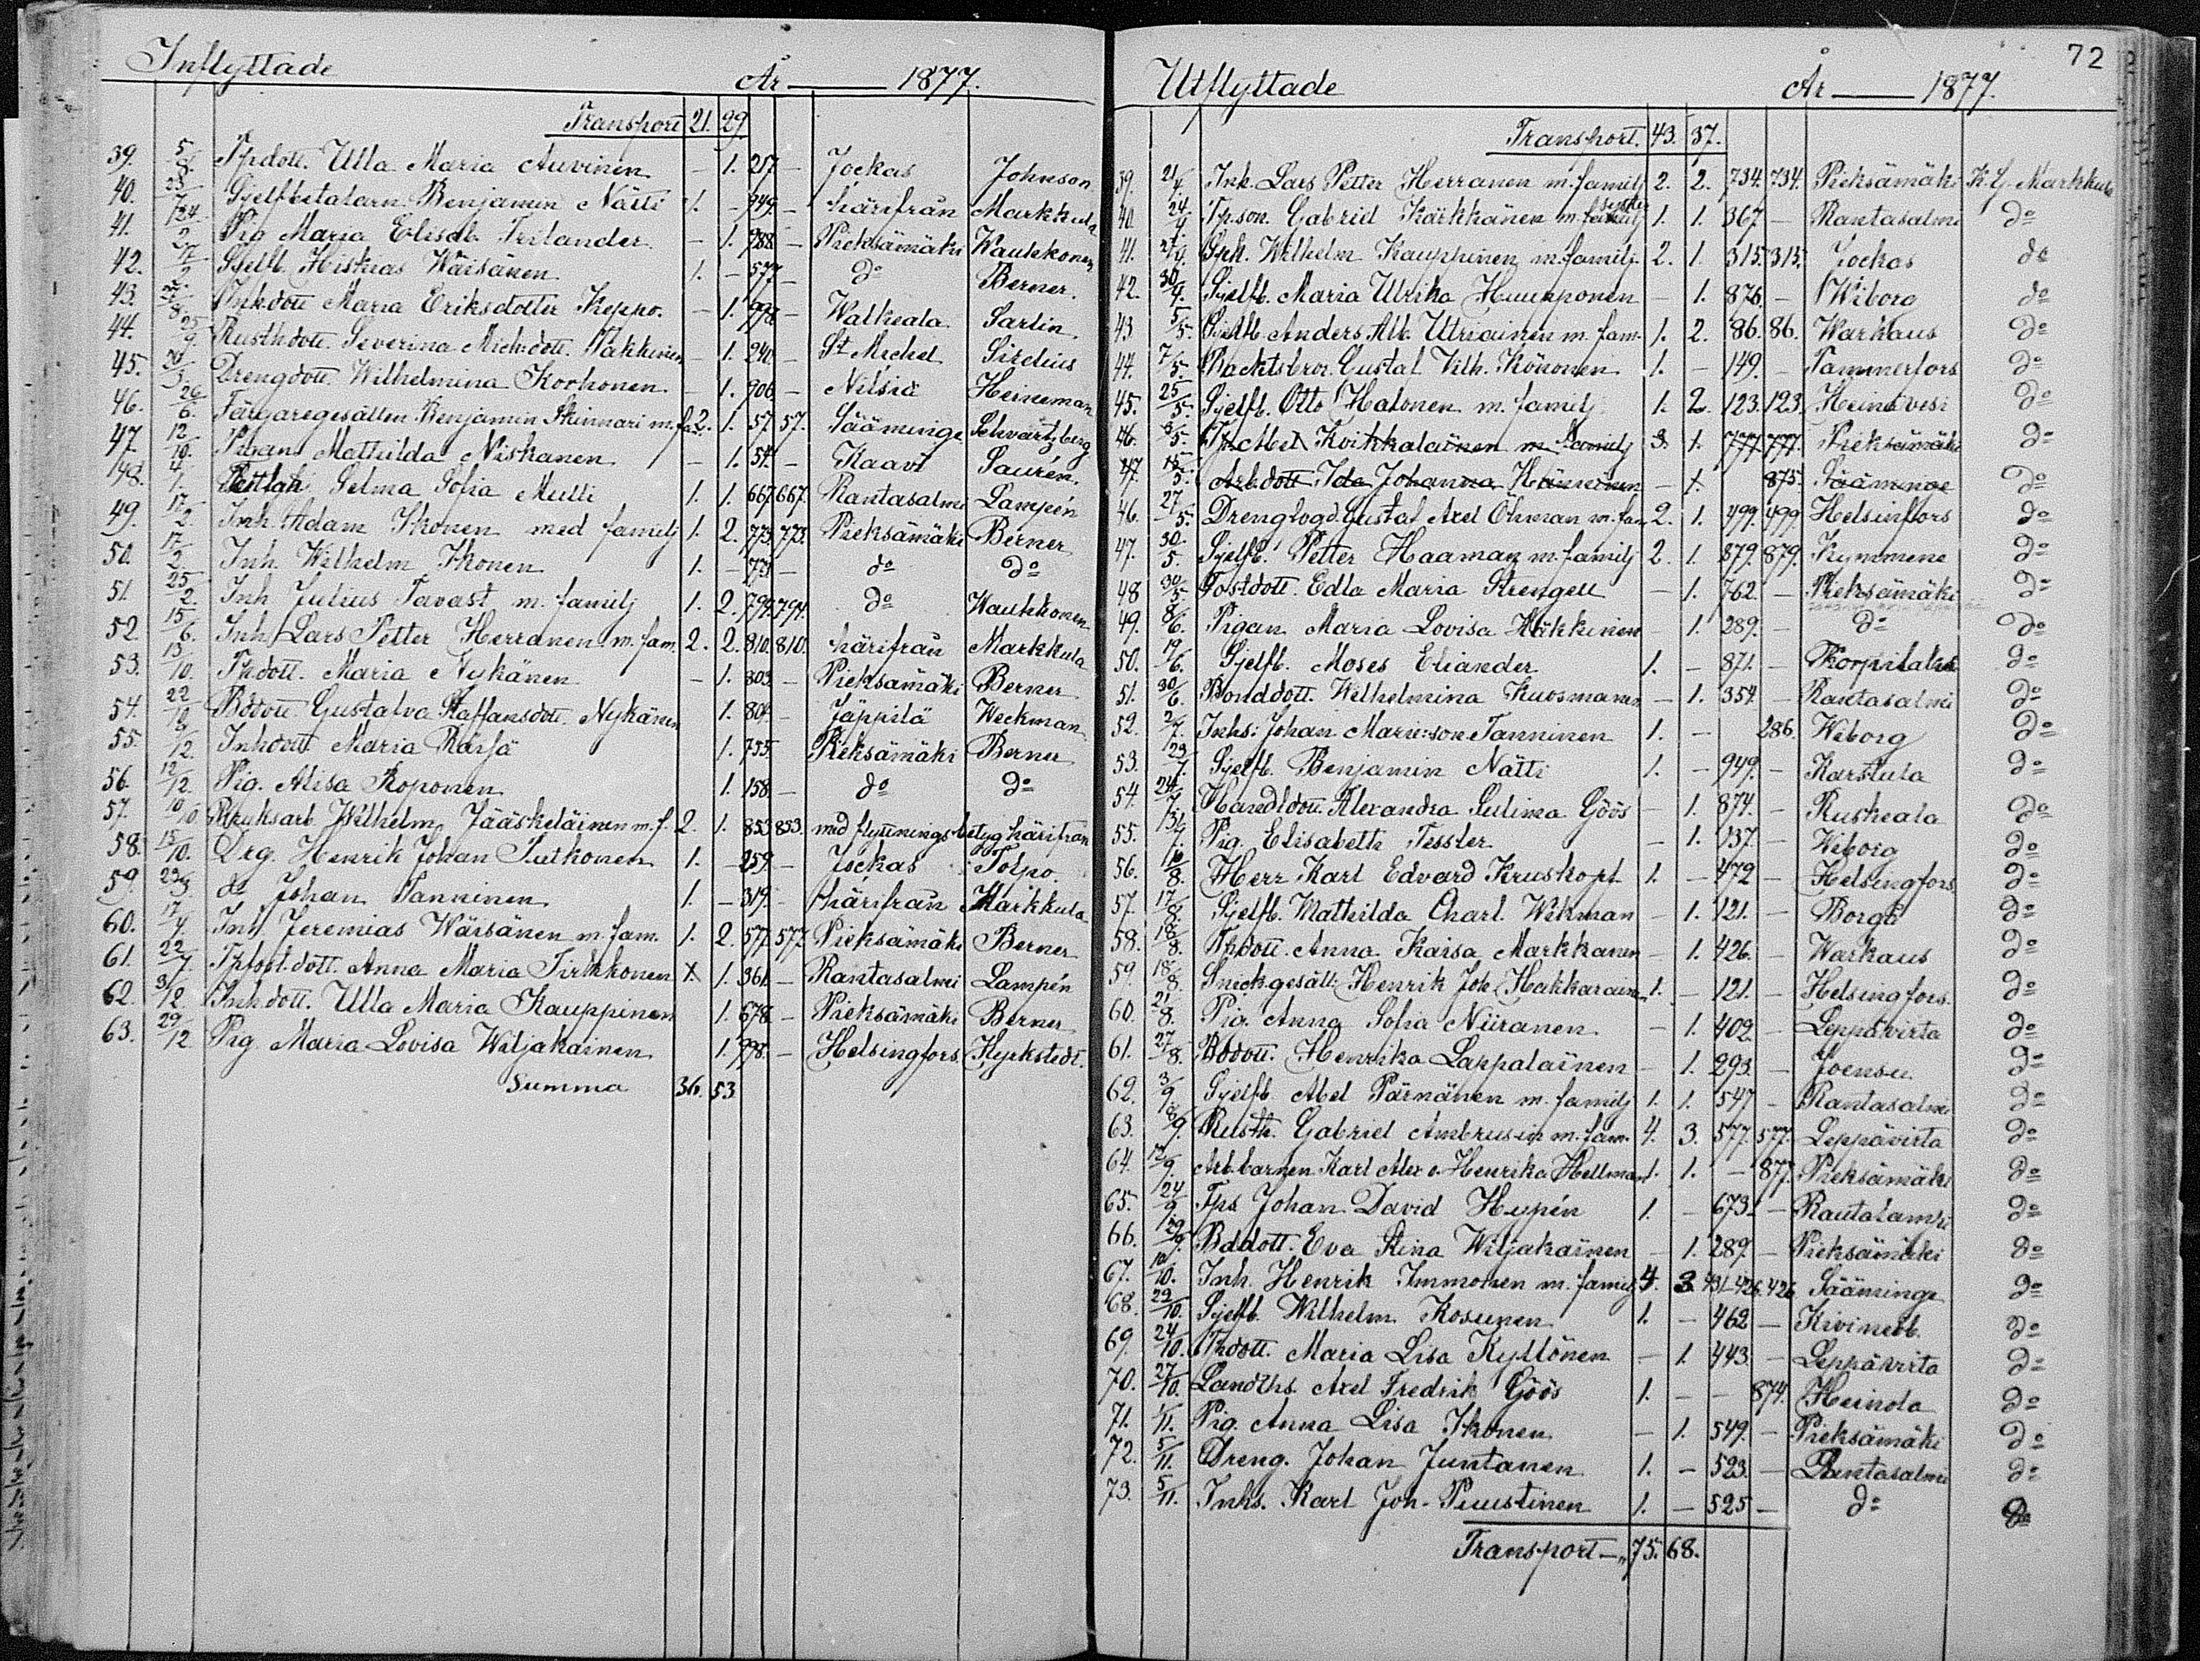 Inflyttade År — 1877.
Transport 21. 29.
39. 5/8. Tpdott. Ulla Maria Auvinen — 1. 257. — Jockas Johnson
40. Sjelfbetalarn Benjamin Nätti 1. — 949. — härifrån Markkula
41. Pig Maria Elisab. Frilander — 1. 988. — Pieksämäki Wauhkonen
42. Sjelfb. Hiskias Wäisänen 1. — 577. — do Berner.
43. Inhdott Maria Eriksdotter Keppo. — 1. 998. — Walkeala Sarlin
44. 25/9. Rusthdott. Severina Mich.dott. Häkkinen — 1. 240. — St Michel Sirelius
45. Drengdott. Wilhelmina Korhonen — 1. 906. — Nilsiä Heineman
46. 26/6. Färgaregesällen Benjamin Skinnari m. fa. 2. 1. 57. 57. Sääminge Schvartzberg
47. 12/10. Pigan Mathilda Niskanen — 1. 54. — Kaavi Saurén.
48. 4/1. Selma Sofia Multi 1. 1. 667. 667. Rantasalmi Lampén
49. 17/2. Inh. Adam Ikonen med familj 1. 2. 773. 773. Pieksämäki Berner
50. 17/2. Inh. Wilhelm Ikonen 1. — 773. — do do
51. 25/2. Inh Julius Tavast m. familj 1. 2. 794. 794. do Wauhkonen
52. 15/6. Inh Lars Petter Herranen m. fam. 2. 2. 810. 810. härifrån Markkula
53. 13/10. Thdott. Maria Nykänen — 1. 803. — Pieksämäki Berner
54. Bddott. Gustafva Staffansdott. Nykänen 1. 804. — Jäppilä Weckman
55. Inhdott Maria Räisä 1. 755. Pieksämäki Berner
56. 12/12. Pig. Alisa Roponen 1. 158. — do do
57. 10/10 Bruksarb Wilhelm Jääskeläinen m. f. 2. 1. 853. 853. med flyttningsbetyg härifrån
58. 15/10. Drg. Henrik Johan Putkonen 1. — 259. — Jockas Tolpo.
59. do Johan Tanninen 1. — 319. — härifrån Markkula
60. 17/4. Inh. Jeremias Wäisänen m. fam. 1. 2. 577. 577. Pieksämäki Berner
61. 22/7. Tpfost.dott. Anna Maria Tirkkonen X 1. 361. — Rantasalmi Lampén
62. 3/12. Inhdott. Ulla Maria Kauppinen 1. 678. — Pieksämäki Berner
63. 29/12 Pig. Maria Lovisa Wiljakainen 1. 998. — Helsingfors Kyrkstedt.
Summa 36. 53
72
Utflyttade År — 1877.
Transport. 43. 37.
39. 21/4. Inh. Lars Petter Herranen m. familj 2. 2. 734. 734. Pieksämäki K. G. Markkula
40. 24/4. Tpson. Gabriel Kärkkänen m. familj syster 1. 1. 367. — Rantasalmi do
41. 27/4. Inh. Wilhelm Kauppinen m. familj 2. 1. 315. 315. Jockas do
42. 30/4. Sjelfb. Maria Ulrika Huupponen — 1. 876. — Wiborg do
43 5/5. Sjelfb. Anders Alb. Utriainen m. fam. 1. 2. 86. 86. Warkaus do
44. 7/5. Gustaf Vilh. Könönen 1. — 149. — Tammerfors do
45. 25/5. Sjelfb. Otto Halonen m. familj 1. 2. 123. 123. Heinävesi do
46. Abel Kvikkalainen m. familj 3. 1. 777. 777. Pieksämäki do
47. 15/5. Arb.dott. Ida Johanna Hänninen — 1. 875. Sääminge do
46. 27/5. Drenglogd. Gustaf Axel Öhman m. fam 2. 1. 499. 499 Helsinfors do
47. 30/5. Sjelfb. Petter Haaman m. familj 2. 1. 879. 879. Kymmene do
48 30/5 Fostdott. Edla Maria Strengell — 1. 762. — Pieksämäki do
49. 8/6. Pigan Maria Lovisa Häkkinen — 1. 289. — do do
50. 17/6. Sjelfb. Moses Eliander 1. — 871. — Korpilaks do
51. 30/6. Bonddott. Wilhelmina Kuosmanen — 1. 354. — Rantasalmi do
52. 2/7. Inhs: Johan Marie:son Tanninen 1. — 286. Wiborg do
53. 23/1. Sjelfb. Benjamin Nätti 1. — 949. — Karstula do
54. 24/7. Handldott Alexandra Sulima Göös — 1. 874. — Ruskeala do
55. Pig. Elisabeth Tessler — 1. 137. — Wiborg do
56. 16/8. Herr Karl Edvard Kruskopf 1. — 472 — Helsingfors do
57. 17/8. Sjelfb. Mathilda Charl. Wikman — 1. 121. — Borgå do
58. 18/8. Thdott. Anna Kaisa Markkanen — 1. 426. — Warkaus do
59. 18/8. Snickgesäll: Henrik Joh. Hakkarainen 1. — 121. — Helsingfors. do
60. 21/8. Pig. Anna Sofia Niiranen — 1. 402. — Leppävirta do
61. 27/8. Bddott. Henrika Lappalainen — 1. 293. — Joensu do
62. 3/9 Sjelfb. Abel Pärnänen m. familj 1. 1. 547 — Rantasalmi do
63. 8/9. Rusth. Gabriel Ambrusin m. fam. 4. 3. 577. 577. Leppävirta do
64. 12/9. Arb.barnen Karl Alex o. Henrika Hellman 1. 1. — 877. Pieksämäki do
65. 24/9 Tps Johan David Hypén 1. — 673. — Rautalampi do
66. 29/9. Bddott. Eva Stina Wiljakainen — 1. 289. — Pieksämäki do
67. 10/10. Inh. Henrik Immonen m. familj 4. 3. 431-426. 426 Sääminge do
68. 22/10. Sjelfb. Wilhelm Kosunen 1. — 462 — Kivineb. do
69. 24/10. Thdott. Maria Lisa Kyllönen — 1. 443. — Leppävirta do
70. 27/10. Landths. Axel Fredrik Göös 1. — — 874. Heinola do
71. 1/11. Pig. Anna Lisa Ikonen — 1. 549. — Pieksämäki do
72. 5/11. Dreng. Johan Juntanen 1. — 523. — Rantasalmi do
73. 5/11. Inhs. Karl Joh. Puustinen 1. — 525 — do do
Transport — 75. 68.